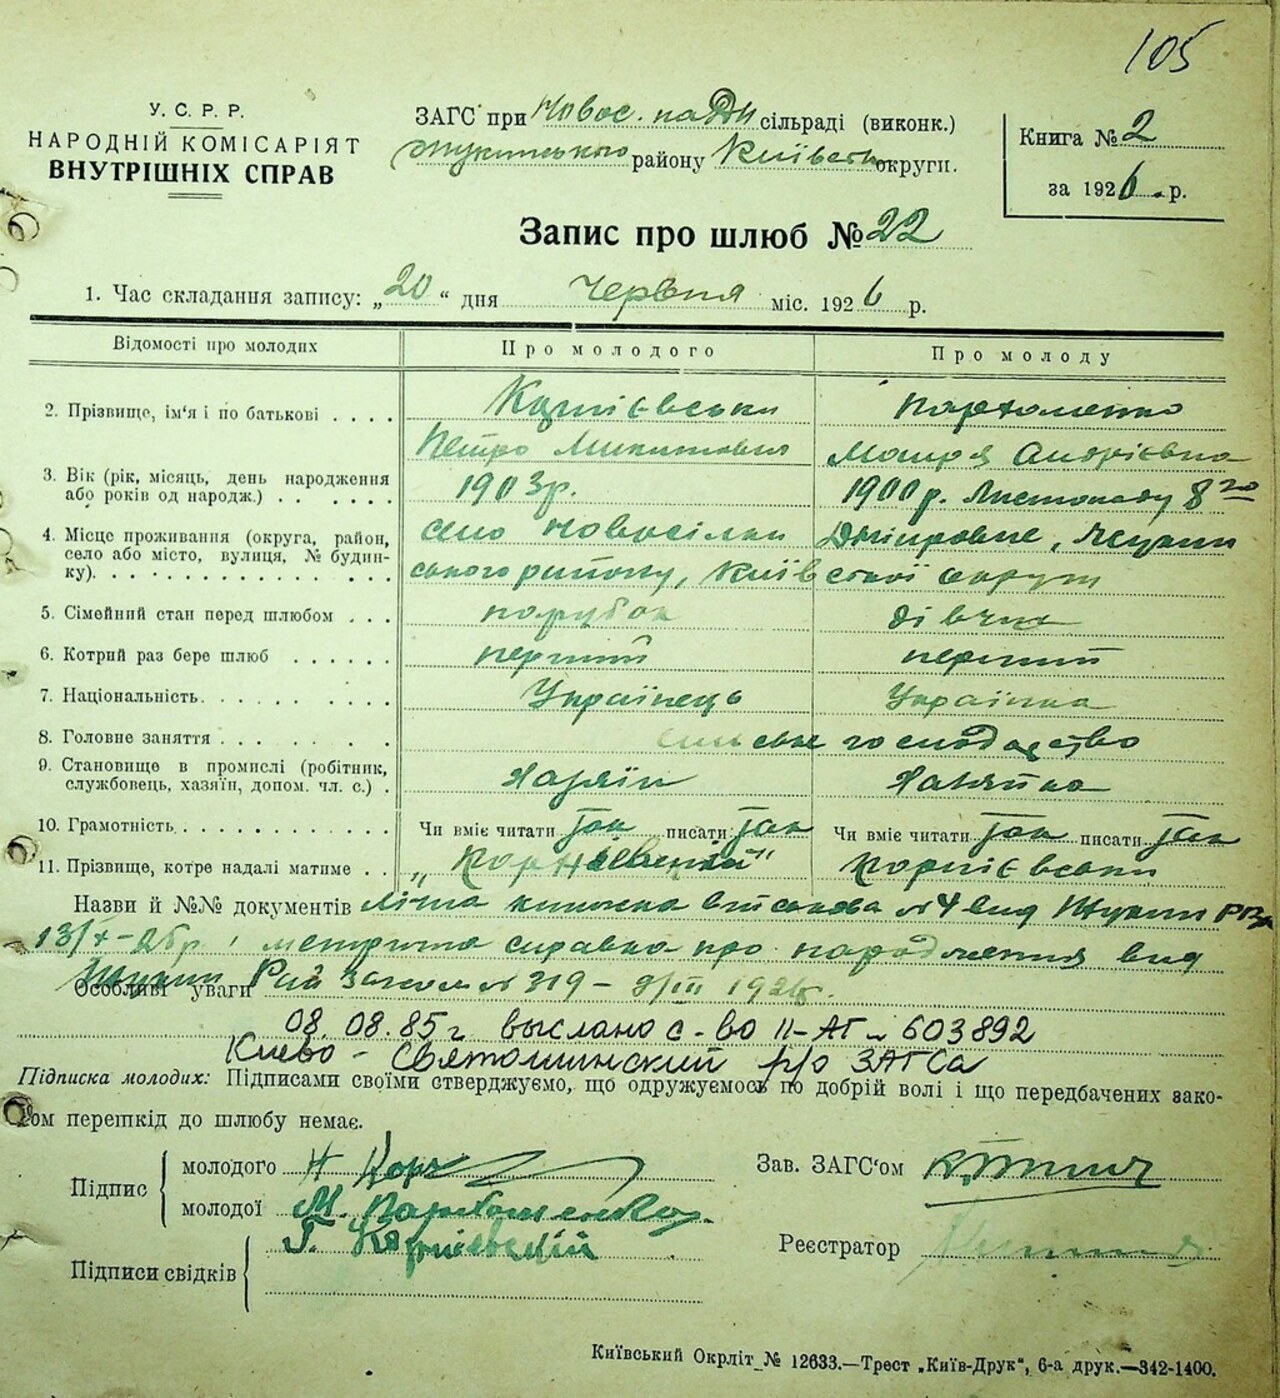 105
У. С. Р. Р.
НАРОДНІЙ КОМІСАРІЯТ
ВНУТРІШНІХ СПРАВ
ЗАГС при Новос. на Дн сільраді (виконк.)
району Київськ округи.
Книга № 2
за 1926 р.
Запис про шлюб № 22
1. Час складання запису: „20“ дня Червня міс. 1926 р.
Відомості про молодих
Про молодого
Про молоду
2. Прізвище, ім'я і по батькові . . . .
Корнієвськи
Пархоменко
Петро Микитович
Мотря Андрієвна
3. Вік (рік, місяць, день народження
або років од народж.) . . . . . .
1903 р.
1900 р. Листопаду 8го
4. Місце проживання (округа, район,
село або місто, вулиця, № будин-
ку). . . . . . . . . . . . . .
село Новосілки Дніпровые,
ського району, Київської округи
5. Сімейний стан перед шлюбом . . .
парубок
дівчина
6. Котрий раз бере шлюб . . . . . .
перший
перший
7. Національність. . . . . . . .
Українець
Українка
8. Головне заняття . . . . . . .
сільське господарство
9. Становище в промислі (робітник,
службовець, хазяїн, допом. чл. с.) .
Хазяїн
Хазяйка
10. Грамотність. . . . . . . . . . . .
Чи вміє читати так писати так
Чи вміє читати так писати так
11. Прізвище, котре надалі матиме . .
„Корнієвський"
Корнієвськи
Назви й №№ документів Літна книжка військова № 4 вид
13/X-25р, метрична справка про народження вид
Особливі уваги Рай Загсом № 319 - III 1926р.
08.08.85г выслано с-во II-АГ № 603892
Киево-Святошинский р/о ЗАГСа
Підписка молодих: Підписами своїми стверджуємо, що одружуємось по добрій волі і що передбачених зако-
ном перешкід до шлюбу немає.
Підпис
молодого
молодої М. Пархоменко
Підписи свідків
Г. Корнієвскій
Зав. ЗАГС'ом
Реєстратор
Київський Окрліт № 12633.—Трест „Київ-Друк“, 6-а друк.—342-1400.